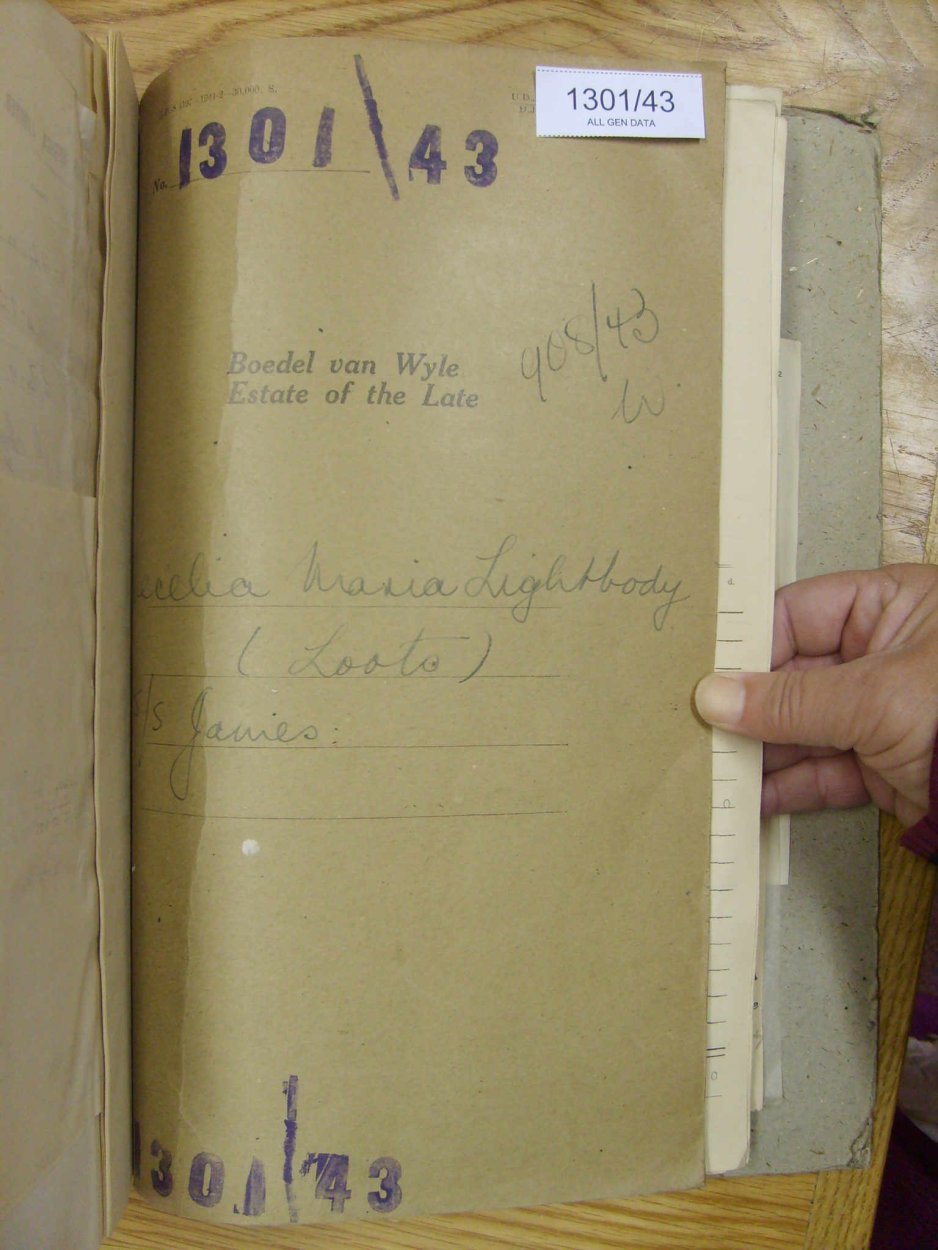 1301/43
ALL GEN DATA
-1941-2-30,000. S.
U.D.
No. 1301/43
908/43
Boedel van Wyle
Estate of the Late
ecelia Maria Lightbody
(Loots)
s/s James:
1301/43